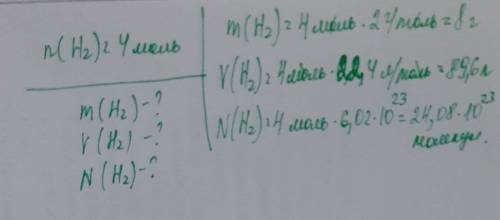 n(H₂) = 4 моль
m(H₂) - ?
V(H₂) - ?
N(H₂) - ?
m(H₂) = 4 моль · 2 г/моль = 8 г
V(H₂) = 4 моль · 22,4 л/моль = 89,6 л
N(H₂) = 4 моль · 6,02 · 10²³ = 24,08 · 10²³
молекул.